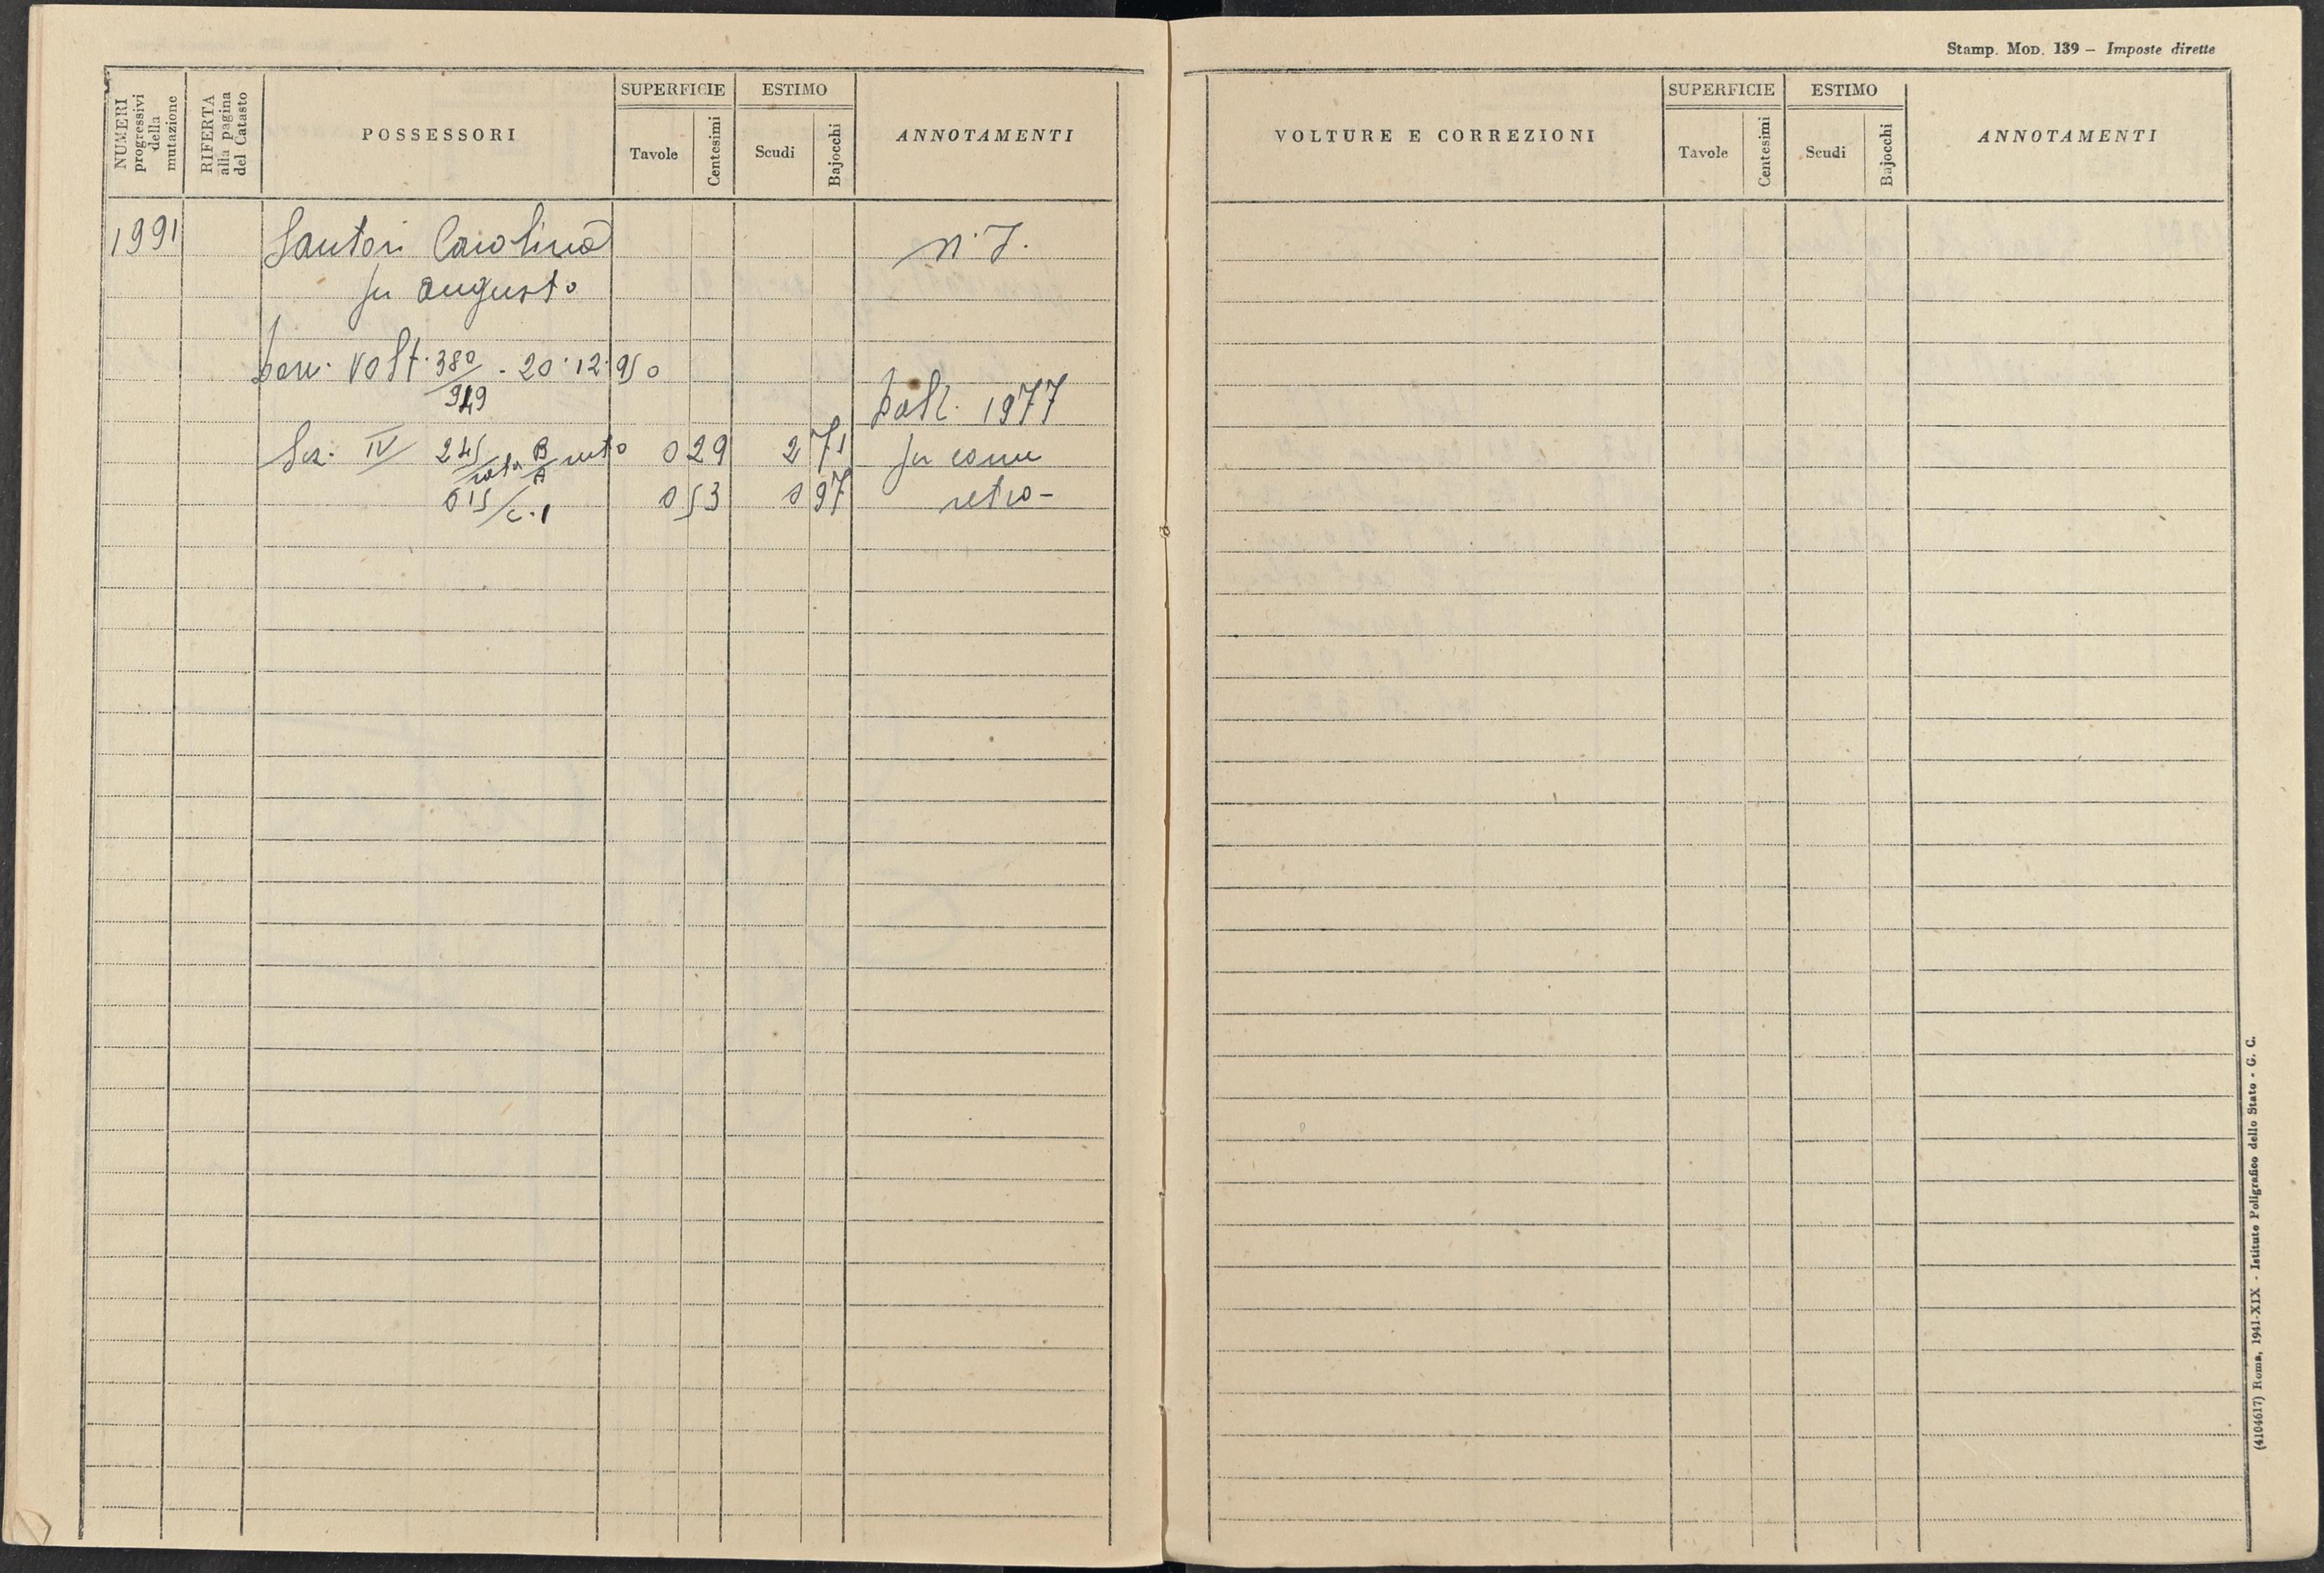 Stamp. Mod. 139 – Imposte dirette
NUMERI progressivi della mutazione
RIFERTA alla pagina del Catasto
POSSESSORI
SUPERFICIE
Tavole
Centesimi
ESTIMO
Scudi
Bajocchi
ANNOTAMENTI
VOLTURE E CORREZIONI
SUPERFICIE
Tavole
Centesimi
ESTIMO
Scudi
Bajocchi
ANNOTAMENTI
1991 Santori Carolina
fu Augusto
Volt. 380/949 - 20.12.950
1977
Sez. IV 245 B/A 0 29 2 71 fu come
615/c.1 0 53 0 97 retro -
(4104617) Roma, 1941-XIX - Istituto Poligrafico dello Stato - G. C.